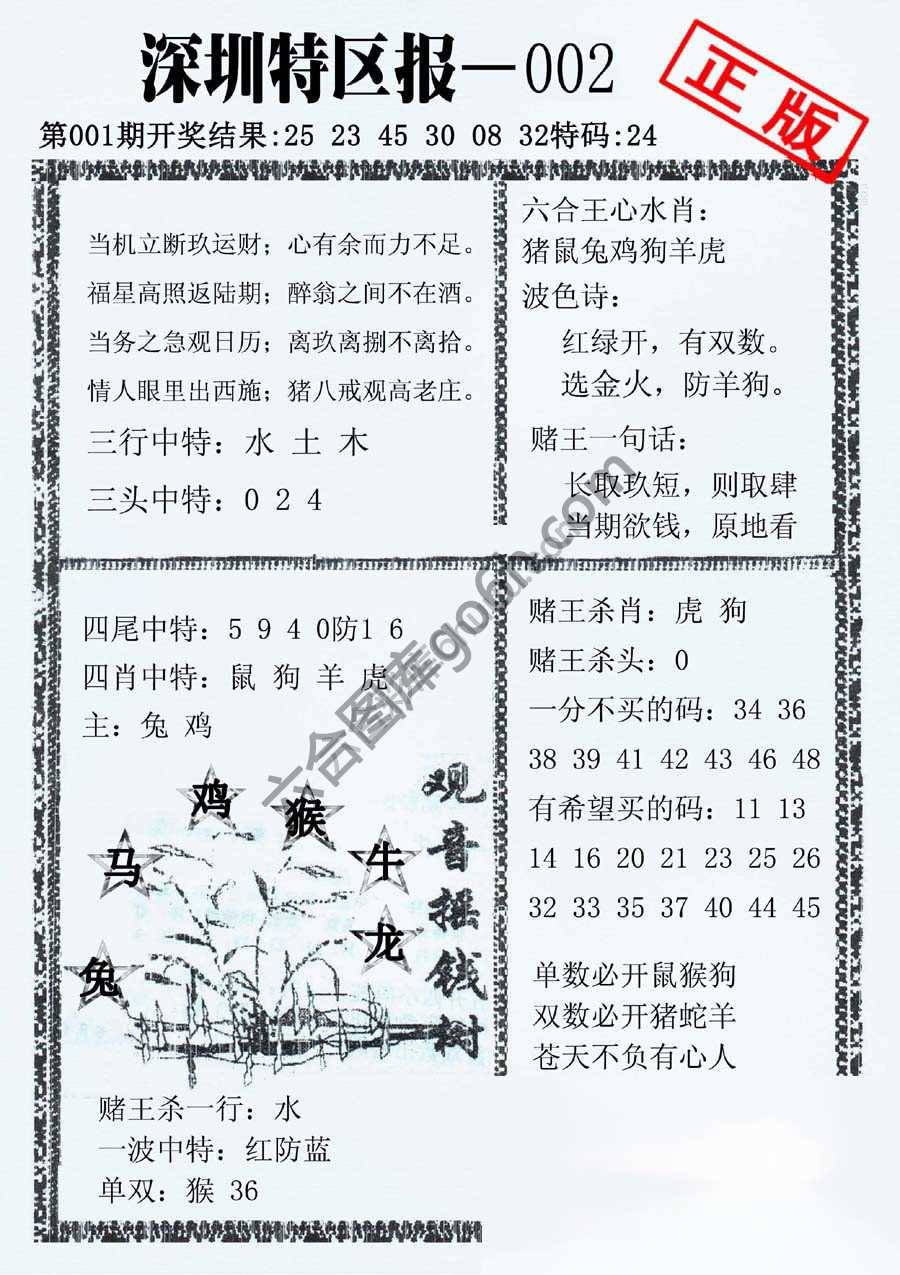 深圳特区报—002
正版
第001期开奖结果:25 23 45 30 08 32特码:24
当机立断玖运财；心有余而力不足。
福星高照返陆期；醉翁之间不在酒。
当务之急观日历；离玖离捌不离拾。
情人眼里出西施；猪八戒观高老庄。
三行中特：水 土 木
三头中特：0 2 4
六合王心水肖：
猪鼠兔鸡狗羊虎
波色诗：
红绿开，有双数。
选金火，防羊狗。
赌王一句话：
长取玖短，则取肆
当期欲钱，原地看
四尾中特：5 9 4 0防1 6
四肖中特：鼠 狗 羊 虎
主：兔 鸡
鸡
猴
马
牛
龙
兔
观音摇钱树
赌王杀一行：水
一波中特：红防蓝
单双：猴 36
赌王杀肖：虎 狗
赌王杀头：0
一分不买的码：34 36
38 39 41 42 43 46 48
有希望买的码：11 13
14 16 20 21 23 25 26
32 33 35 37 40 44 45
单数必开鼠猴狗
双数必开猪蛇羊
苍天不负有心人